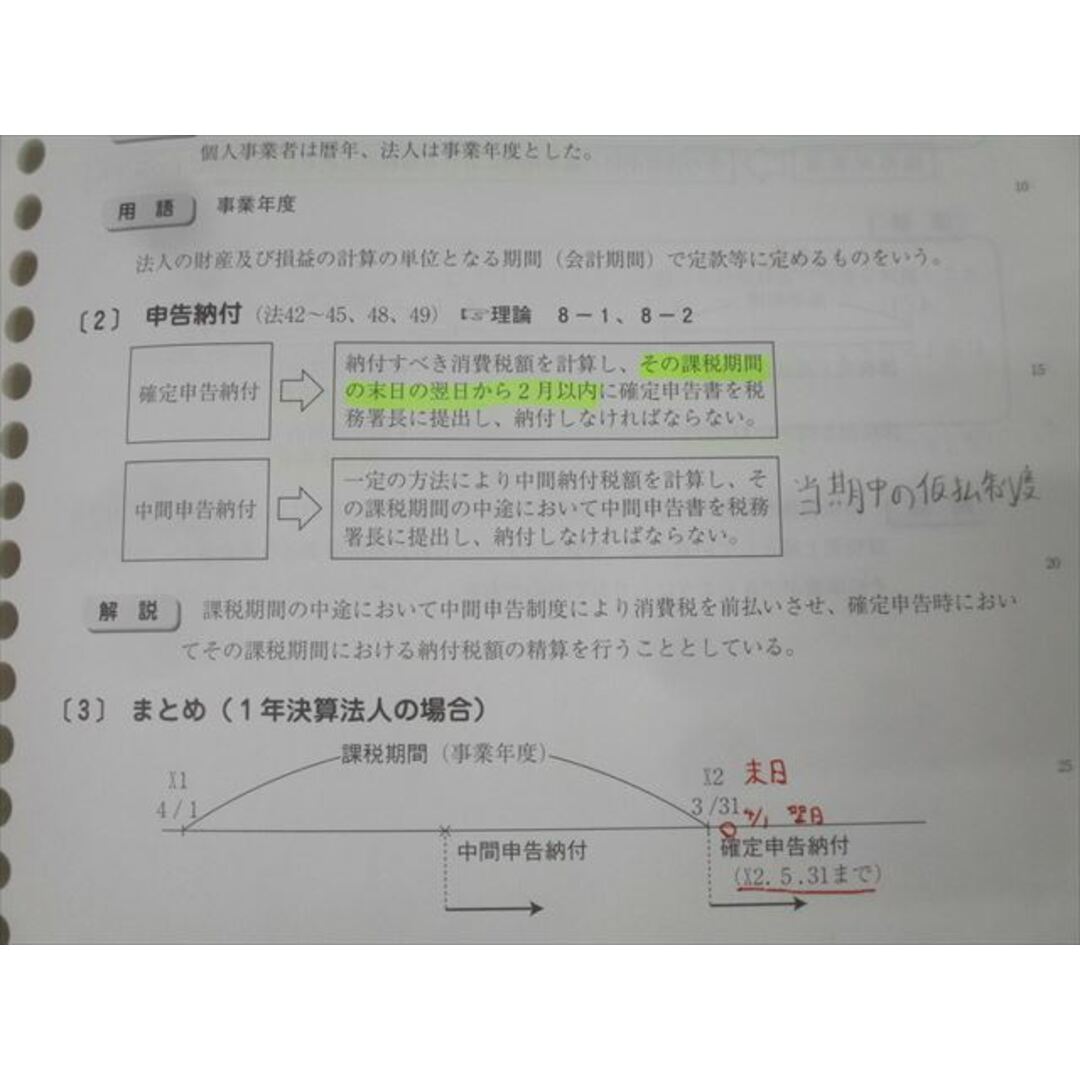 個人事業者は暦年、法人は事業年度とした。
10
用 語 事業年度
法人の財産及び損益の計算の単位となる期間（会計期間）で定款等に定めるものをいう。
〔2〕 申告納付（法42～45、48、49） ☞理論 8－1、8－2
確定申告納付
納付すべき消費税額を計算し、その課税期間
の末日の翌日から2月以内に確定申告書を税
務署長に提出し、納付しなければならない。
15
中間申告納付
一定の方法により中間納付税額を計算し、そ
の課税期間の中途において中間申告書を税務
署長に提出し、納付しなければならない。
当期中の仮払制度
20
解 説 課税期間の中途において中間申告制度により消費税を前払いさせ、確定申告時におい
てその課税期間における納付税額の精算を行うこととしている。
〔3〕 まとめ（1年決算法人の場合）
課税期間（事業年度）
25
X1
4/1
X2 末日
3/31
4/1 翌日
中間申告納付
確定申告納付
（X2.5.31まで）